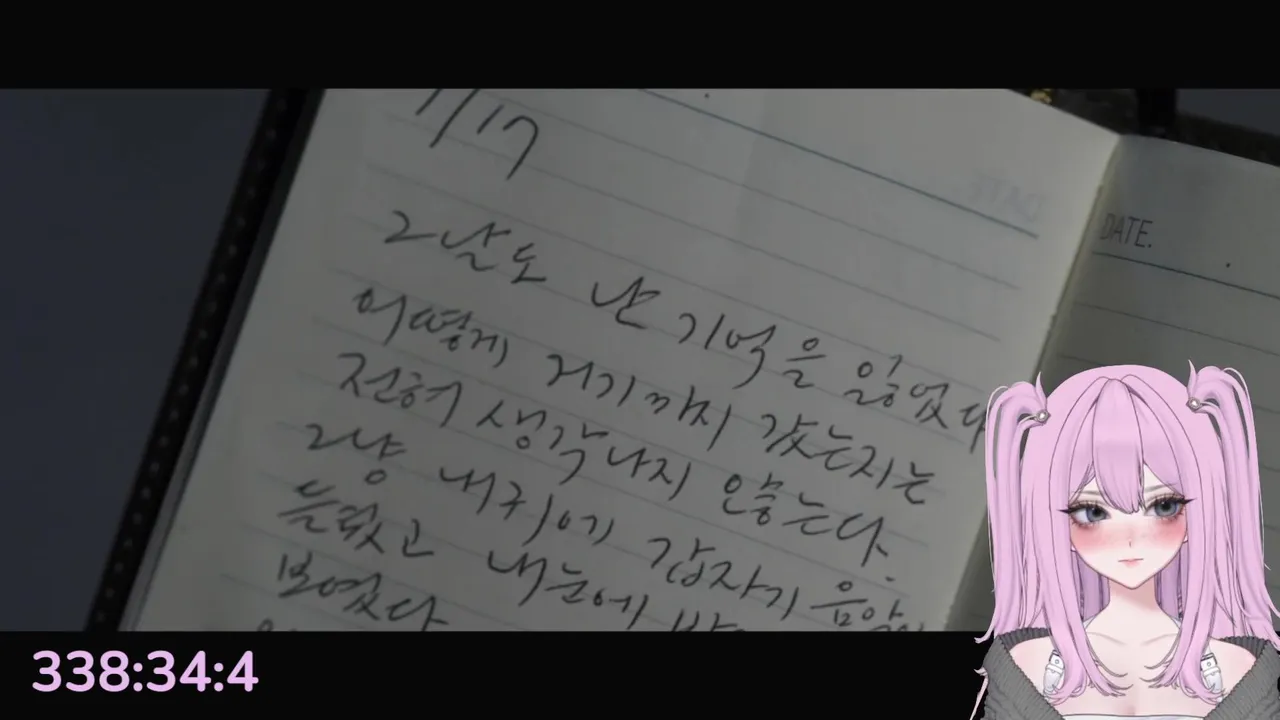 1/17
DATE.
그날도 난 기억을 잃었다
어떻게 거기까지 갔는지는
전혀 생각나지 않는다.
그냥 내 귀에 갑자기 음악이
들렸고 내 눈에
보였다
338:34:4